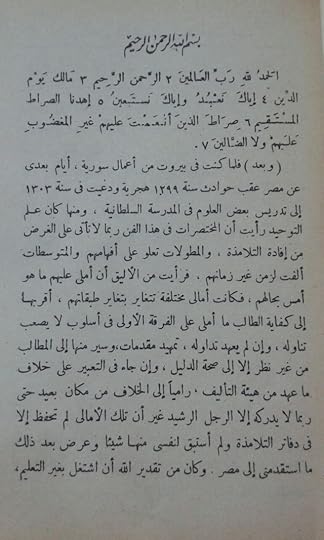 بسم الله الرحمن الرحيم
الحمد لله رب العالمين ٢ الرحمن الرحيم ٣ مالك يوم
الدين ٤ إياك نعبد وإياك نستعين ٥ إهدنا الصراط
المستقيم ٦ صراط الذين أنعمت عليهم غير المغضوب
عليهم ولا الضالين ٧ .
( وبعد ) فلما كنت فى بيروت من أعمال سورية ، أيام بعدى
عن مصر عقب حوادث سنة ١٢٩٩ هجرية ودعيت فى سنة ١٣٠٣
إلى تدريس بعض العلوم فى المدرسة السلطانية ، ومنها كان علم
التوحيد رأيت أن المختصرات فى هذا الفن ربما لا تأتى على الغرض
من إفادة التلامذة ، والمطولات تعلو على أفهامهم والمتوسطات
ألفت لزمن غير زمانهم ، فرأيت من الأليق أن أملى عليهم ما هو
أمس بحالهم ، فكانت أمالى مختلفة تتغاير بتغاير طبقاتهم ، أقربها
إلى كفاية الطالب ما أملى على الفرقة الأولى فى أسلوب لا يصعب
تناوله ، وإن لم يعهد تداوله ، تمهيد مقدمات ، وسير منها إلى المطالب
من غير نظر إلا إلى صحة الدليل ، وإن جاء فى التعبير على خلاف
ما عهد من هيئة التأليف . راميا إلى الخلاف من مكان بعيد حتى
ربما لا يدركه إلا الرجل الرشيد غير أن تلك الأمالى لم تحفظ إلا
فى دفاتر التلامذة ولم أستبق لنفسى منها شيئا وعرض بعد ذلك
ما استقدمنى إلى مصر . وكان من تقدير الله أن اشتغل بغير التعليم ،